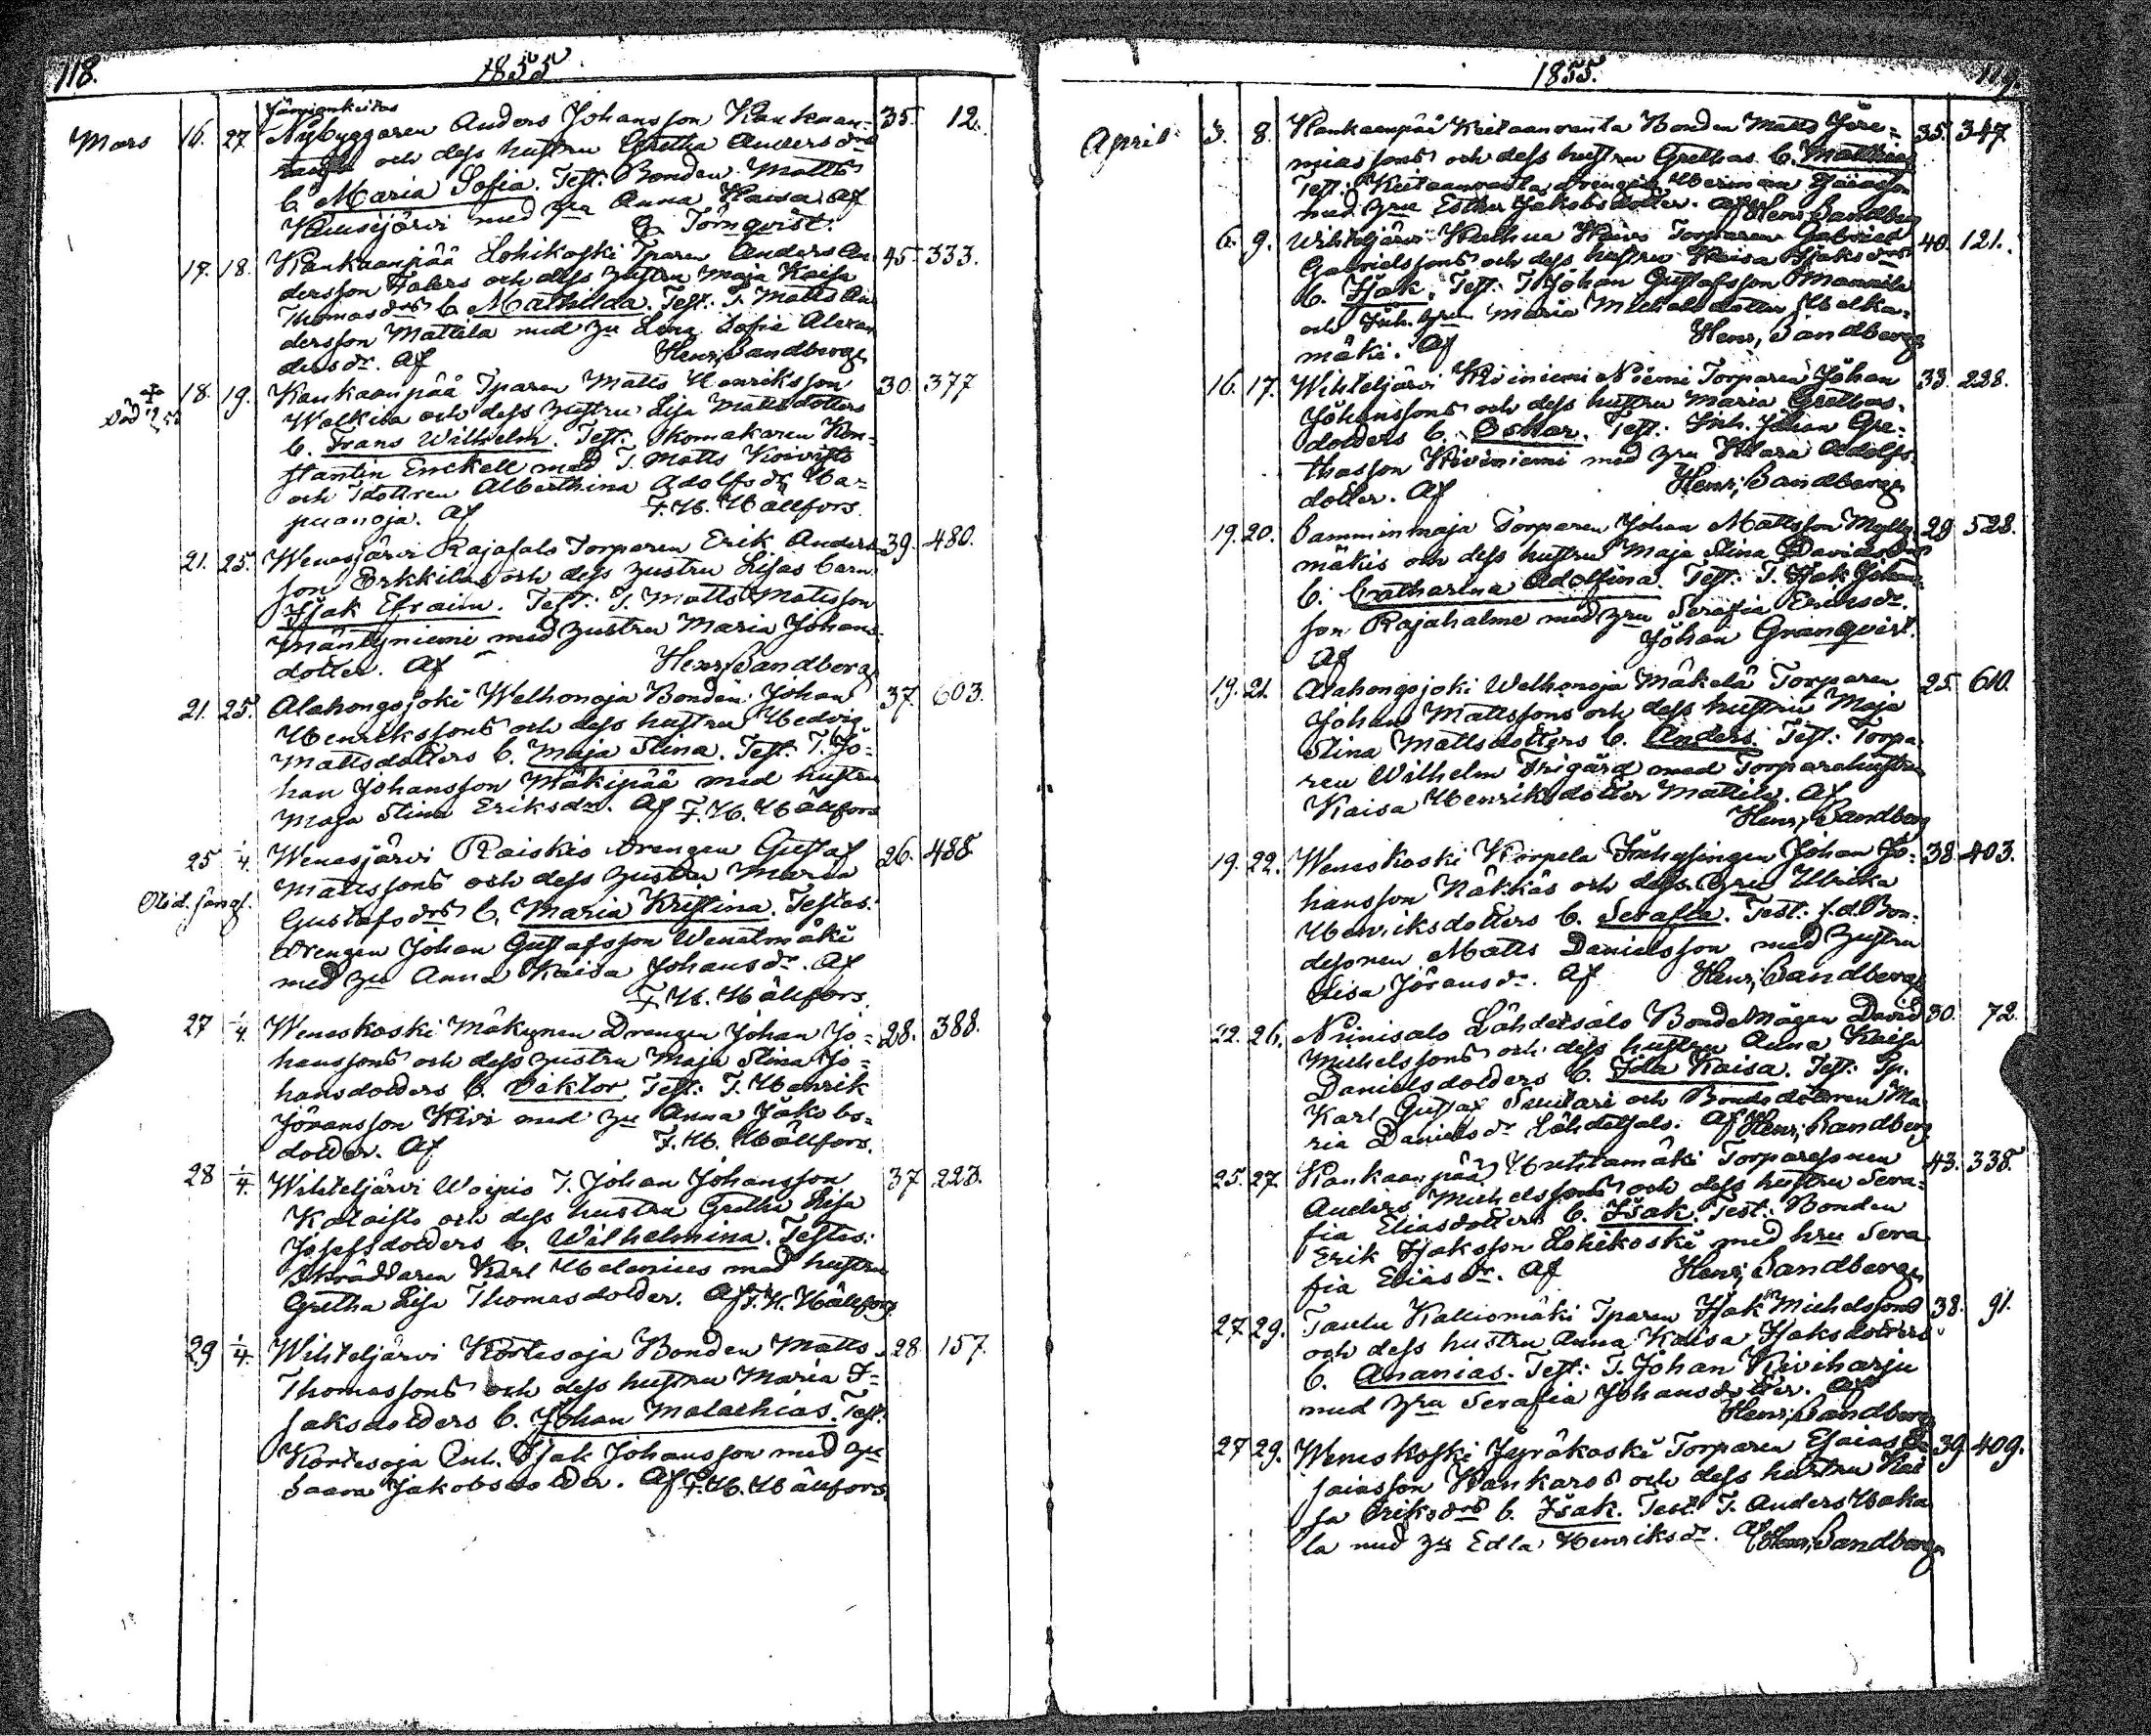 118. 1855
Mars 16. 27. Jämijenkeitas
Nybyggaren Anders Johansson Kankaan- 35. 12.
och dess hustru Gretha Anders drs
C. Maria Sofia. Test: Bonden Matts
med hru Anna Kaisa. Af
G. Törnqvist.
17. 18. Kankaanpää Lohikoski Tparen Anders An- 45. 333.
dersson och dess hustru Maja Kaisa
Thomas drs C. Mathilda. Test: T. Matts An-
dersson Mattila med hu Lena Sofia Alexan
ders dr. Af Henr. Sandberg
+ 18. 19. Kankaanpää Tparen Matts Henriksson 30. 377
Död
Walkila och dess hustru Lisa Mattsdotters
C. Frans Wilhelm. Test: Skomakaren Kon-
stantin Enckell med T. Matts Koivisto
och Tdottren Alberthina Adolfs dr Ha-
puanoja. Af F. H. Hällfors.
21. 25. Wenesjärvi Rajasalo Torparen Erik Anders- 39. 480.
son Erkkilas och dess hustru Lisas barn
Isak Efraim. Test: T. Matts Matsson
Mäntyniemi med hustru Maria Johans-
dotter. Af Henr. Sandberg
21. 25. Alahongojoki Welhonoja Bonden Johan 37. 603.
Henrikssons och dess hustru Hedvig
Mattsdotters C. Maja Stina. Test: T. Jo-
han Johansson Mäkipää med hustru
Maja Stina Eriksdr. Af F. H. Hällfors
25 1/4. Wenesjärvi Raiskio drengen Gustaf 26. 488.
Mattssons och dess hustru Maria
Gustafs drs C. Maria Kristina. Testes:
drengen Johan Gustafsson Wenetmäki
med hu Anna Kaisa Johans dr. Af
F. H. Hällfors.
27 1/4. Weneskoski Mäkynen Drengen Johan Jo- 28. 388.
hanssons och dess hustru Maja Stina Jo-
hansdotters C. Viktor. Test: T. Henrik
Göransson Kivi med hu Anna Jakobs-
dotter. Af F. H. Hällfors.
28 1/4. Wihteljärvi Woipio T. Johan Johansson 37. 223.
Kalaisto och dess hustru Gretha Lisa
Josefsdotters C. Wilhelmina. Testes:
Skräddaren Karl Helenius med hustru
Gretha Lisa Thomasdotter. Af F. H. Hällfors.
29 1/4. Wihteljärvi Kortesoja Bonden Matts 28. 157.
Thomassons och dess hustru Maria I-
saksdotters C. Johan Malachias. Test:
Kortesoja Inh. Isak Johansson med hu
Saara Jakobsdotter. Af F. H. Hällfors.
1855. 119.
April 3. 8. Kankaanpää Keitaanranta Bonden Matts Jere- 35. 347.
miassons och dess hustru Grethas C. Matthias
Test: Keitaanranta Drengen Herman Esaiasson
med hru Esther Jakobsdotter. Af Henr. Sandberg
6. 9. Wihteljärvi Torparen Gabriel 40. 121.
Gabrielssons och dess hustru Kaisa Isaks drs
C. Isak. Test: T. Johan Gustafsson
och Inh. hru Maria Michelsdotter Halka-
mäki. Af Henr. Sandberg
16. 17. Wihteljärvi Kiviniemi Niemi Torparen Johan 33. 228.
Johanssons och dess hustru Maria Grethas-
dotters C. Oskar. Test: Inh. Johan Gre-
thasson Kiviniemi med hru Klara Adolfs-
dotter. Af Henr. Sandberg
19. 20. Samminmaja Torparen Johan Mattsson Mylly- 29. 528.
mäkis och dess hustru Maja Stina Davidsdrs
C. Catharina Adolfina. Test: T. Isak Johans-
son Rajahalme med hru Serafia Eriksdr.
Af Johan Granqvist.
19. 21. Alahongojoki Welhonoja Mäkelä Torparen 25. 610.
Johan Mattssons och dess hustru Maja
Stina Mattsdotters C. Anders. Test: Torpa-
ren Wilhelm Frigård med Torparehustru
Kaisa Henriksdotter Mattila. Af
Henr. Sandberg
19. 22. Weneskoski Korpela Inhysingen Johan Jo- 38. 403.
hansson Näkkäs och dess hru Ulrika
Henriksdotters C. Serafia. Test: f. d. Bon-
desonen Matts Danielsson med hustru
Lisa Jörans dr. Af Henr. Sandberg
22. 26. Niinisalo Lähdetsalo Bondemågen David 30. 72.
Michelssons och dess hustru Anna Kaisa
Danielsdotters C. Ida Kaisa. Test: Tp.
Karl Gustaf och Bondedottren Ma-
ria Daniels dr Lähdetsalo. Af Henr. Sandberg
25. 27. Kankaanpää Huhtamäki Torparesonen 43. 338.
Anders Michelssons och dess hustru Sera-
fia Eliasdotters C. Isak. Test: Bonden
Erik Isaksson Lohikoski med hru Sera
fia Elias dr. Af Henr. Sandberg
27. 29. Taulu Kalliomäki Tparen Isak Michelssons 38. 91.
och dess hustru Anna Kaisa Isaksdotters
C. Ananias. Test: T. Johan Kiviharju
med hru Serafia Johansdotter. Af
Henr. Sandberg
27. 29. Weneskoski Jyräkoski Torparen Esaias E- 39. 409.
saiasson Kankaros och dess hustru Kai
sa Eriks drs C. Isak. Test: T. Anders Haka
la med hu Edla Henriks dr. Af Henr. Sandberg